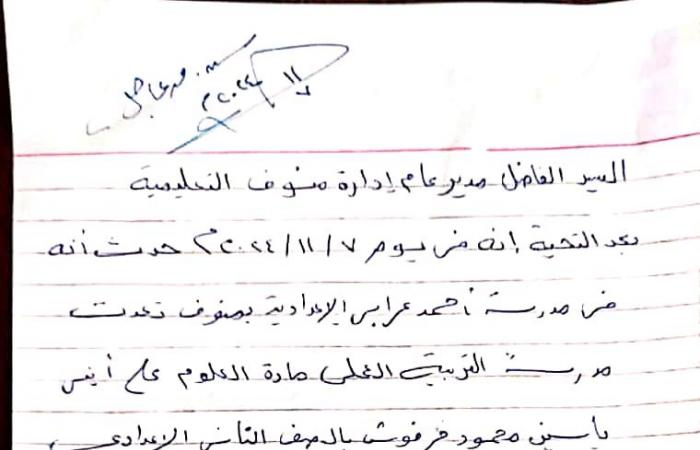 ١١/٧
٢٠٢٤م
السيد الفاضل مدير عام إدارة منوف التعليمية
بعد التحية إنه فى يوم ٧/١١/٢٠٢٤م حدث أنه
فى مدرسة أحمد عرابى الإعدادية بمنوف تعدت
مدرسة التربية العملى مادة العلوم على أبنى
ياسين محمود فرفوش بالصف الثانى الإعدادى،